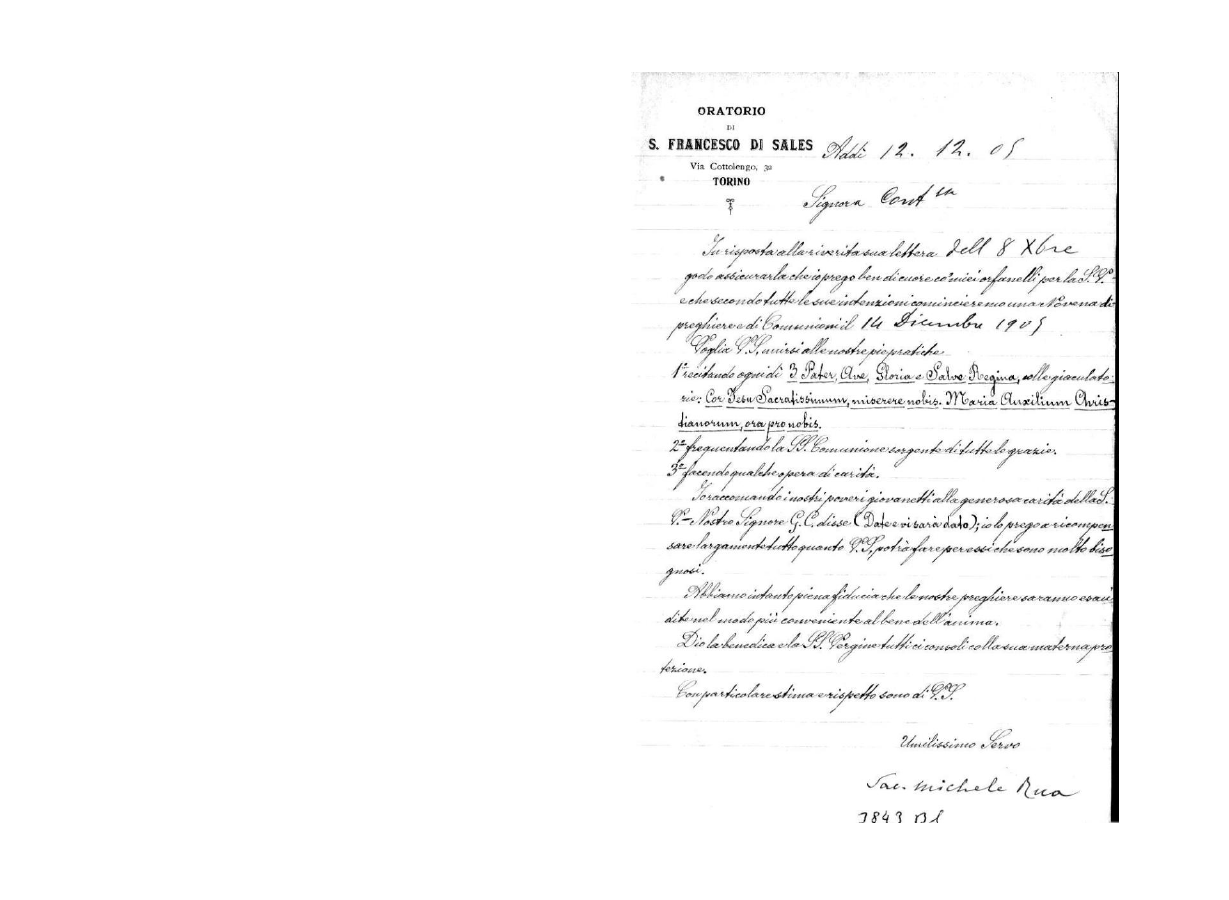 ORATORIO
DI
S. FRANCESCO DI SALES
Via Cottolengo, 32
TORINO
Addì 12. 12. 05
Signora Cont sa
In risposta alla riverita sua lettera dell 8 Xbre
godo assicurarla che io prego ben di cuore co' miei orfanelli per la S. V.
e che secondo tutte le sue intenzioni cominceremo una Novena di
preghiere e di Comunioni il 14 Dicembre 1905
Voglia V. S. unirsi alle nostre pie pratiche
1° recitando ogni dì 3 Pater, Ave, Gloria e Salve Regina, colle giaculato-
rie: Cor Jesu Sacratissimum, miserere nobis. Maria Auxilium Chris-
tianorum, ora pro nobis.
2° frequentando la SS. Comunione sorgente di tutte le grazie.
3° facendo qualche opera di carità.
Io raccomando i nostri poveri giovanetti alla generosa carità della S.
V. Nostro Signore G. C. disse (Date e vi sarà dato); io lo prego a ricompen
sare largamente tutto quanto V. S. potrà fare per essi che sono molto biso
gnosi.
Abbiamo intanto piena fiducia che le nostre preghiere saranno esau
dite nel modo più conveniente al bene dell'anima.
Dio la benedica e la SS. Vergine tutti ci consoli colla sua materna pro
tezione.
Con particolare stima e rispetto sono di V. S.
Umilissimo Servo
Sac. Michele Rua